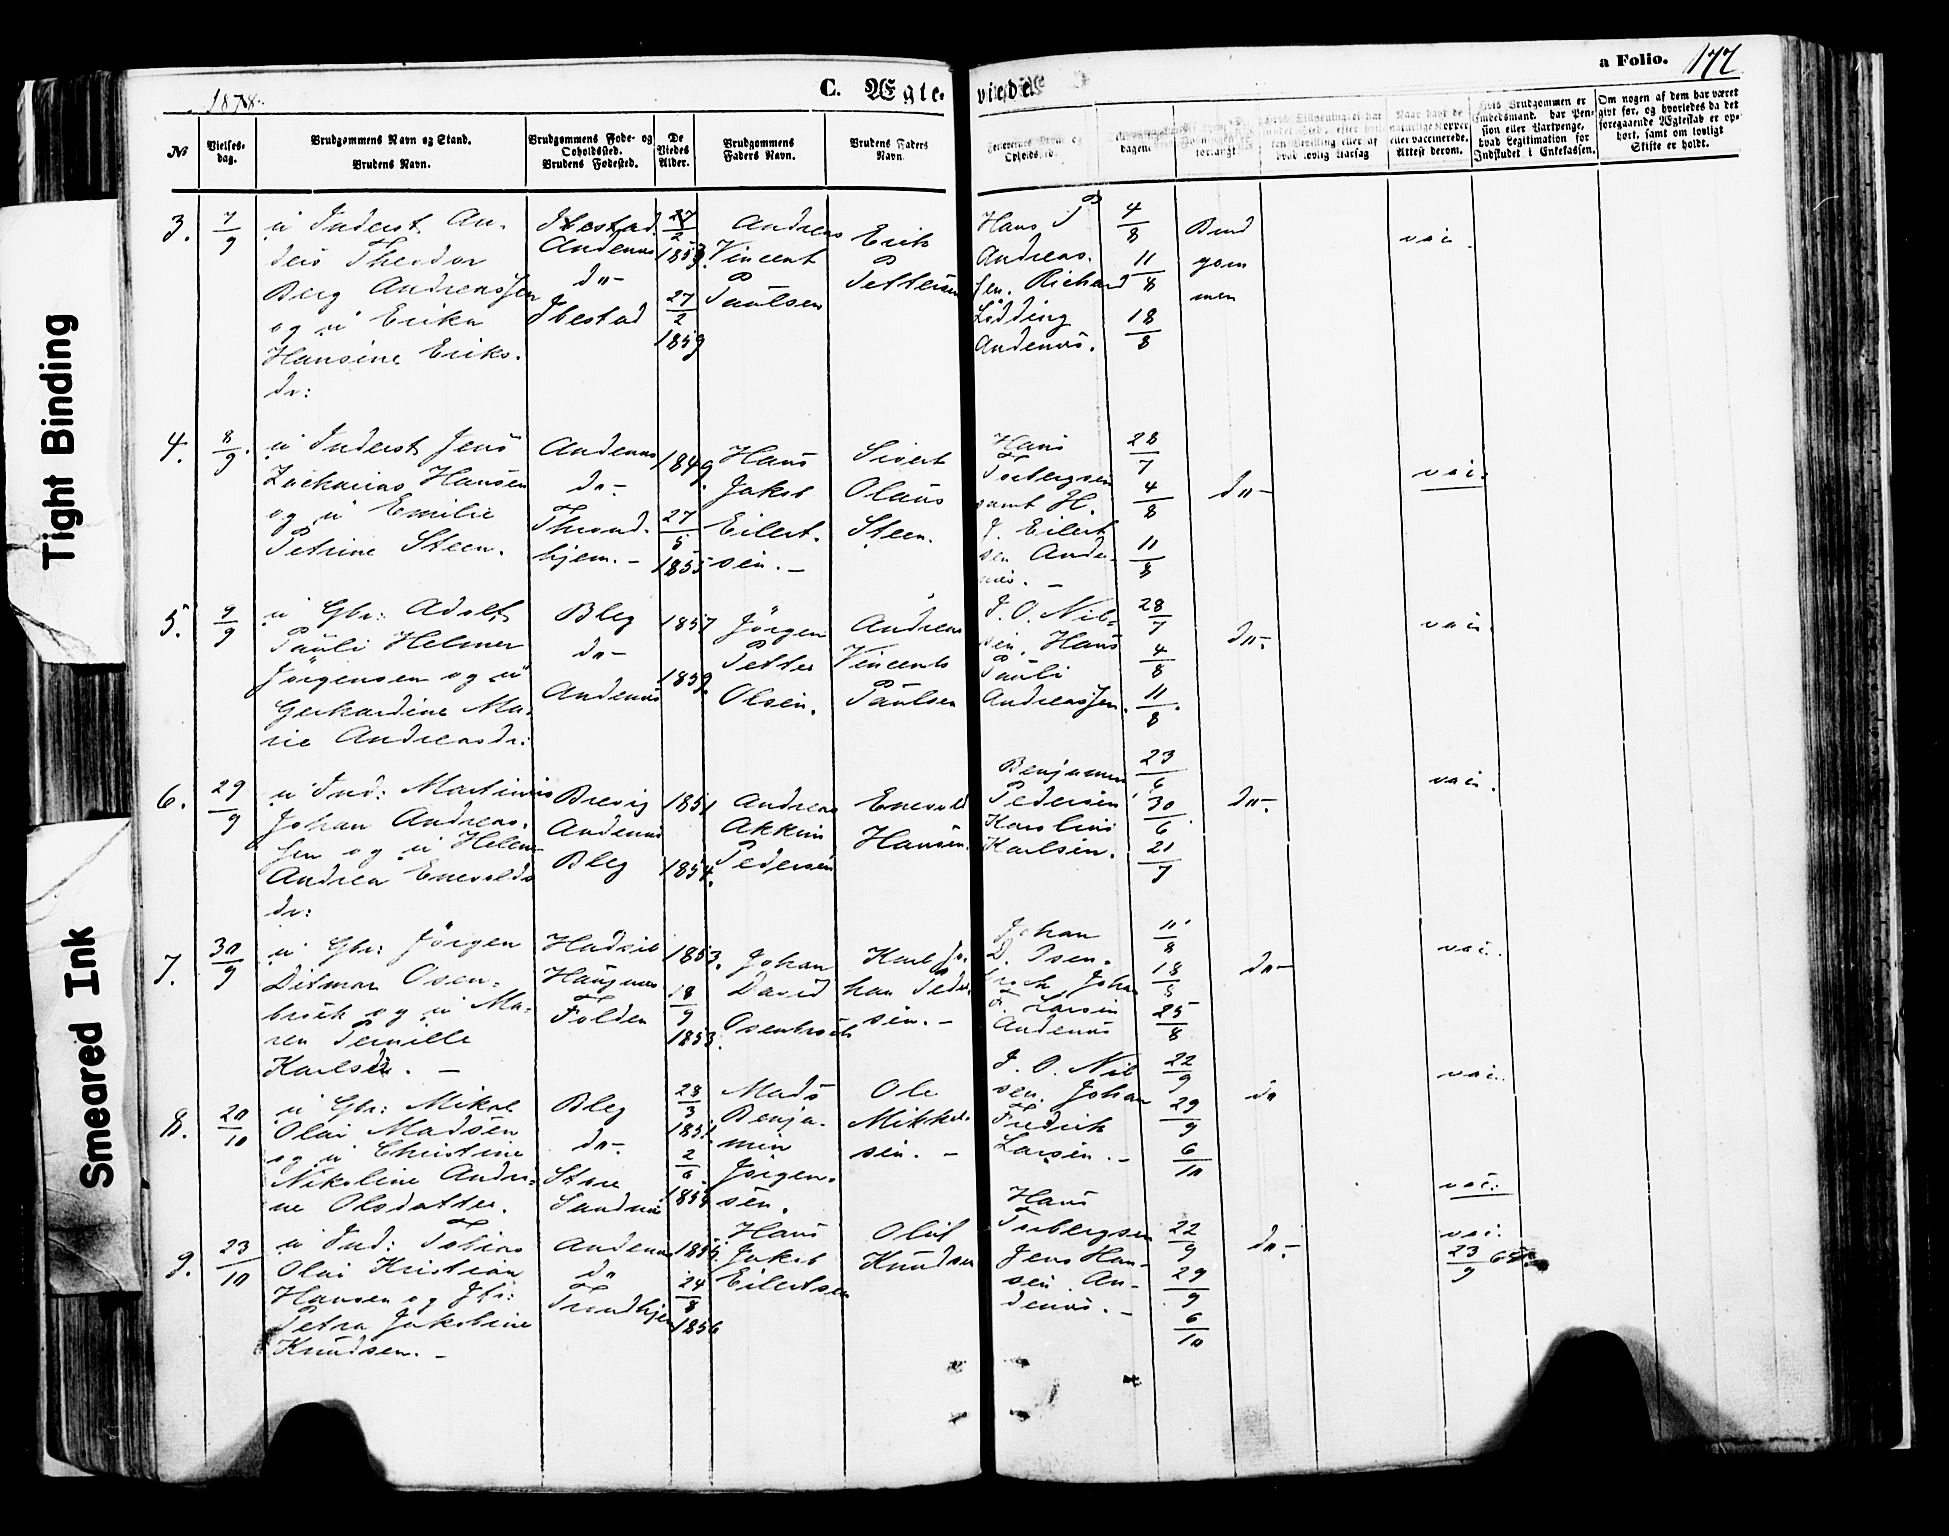 Tight Binding
Smeared Ink
1878.
C. Ægte-
viede
a Folio. 177
№
Vielses-
dag.
Brudgommens Navn og Stand.
Brudens Navn.
Brudgommens Føde- og
Opholdssted.
Brudens Fødested.
De
Viedes
Alder.
Brudgommens
Faders Navn.
Brudens Faders
Navn.
Naar havt de
naturlige Kopper
eller vaccinerede.
Attest derom.
Hvis Brudgommen er
Embedsmand, har Pen-
sion eller Vartpenge,
hvad Legitimation for
Indskudet i Enkekassen.
Om nogen af dem har været
gift før, og hvorledes da det
foregaaende Ægteskab er op-
hørt, samt om lovligt
Skifte er holdt.
3.
7/9
u Inderst An-
ders Theodor
Berg Andreassen
og u Erika
Hansine Eriks-
dr:
Ibestad
Andenæs
do-
Ibestad
27/2
1853.
27/2
1859
Andreas
Vincent
Paulsen
Erik
Pettersen
Hans P
Andreas-
sen. Richard
Lødding
Andenæs.
4/8
11/8
18/8
Brud
gom
men
vac.
4.
8/9.
u Inderst Jens
Zacharias Hansen
og u Emilie
Petrine Steen.
Andenæs
do-
Thrond-
hjem. -
1849.
27/5
1855
Hans
Jakob
Eilert-
sen. -
Sivert
Olaus
Steen.
Hans
Torbergsen
samt H.
J. Eilert
sen Ande-
næs. -
28/7
4/8
11/8
do-
vac.
5.
9/9
u Gbr: Adolf
Pauli Helmer
Jørgensen og u
Gerhardine Ma-
rie Andreasdr:
Bleg
do-
Andenæs
1857
1859.
Jørgen
Petter
Olsen.
Andreas
Vincents
Paulsen
J. O. Nil-
sen. Hans
Pauli
Andreassen.
28/7
4/8
11/8.
do-
vac.
6.
29/9
u Ind: Martinus
Johan Andreas-
sen og u Helene
Andrea Enevolds
dr:
Brevig
Andenæs
Bleg
1851
1854.
Andreas
Akkim
Pedersen
Enevold
Hansen.
Benjamin
Pedersen
Karolius
Karlsen.
23/6
30/6
21/7
do-
vac.
7.
30/9
u Gbr: Jørgen
Ditmar Osen-
broch og u Ma-
ren Pernille
Karlsdr. -
Hadsel
Haugnæs
Folden
1853.
18/9
1853.
Johan
David
Osenbroch
Karl Jo-
han Peder-
sen. -
Johan
D. Osen-
broch Johan
F. Larsen
Andenæs
11/8
18/8
25/8
do-
vac.
8.
20/10
u Gbr: Mikal
Olai Madsen
og u Christine
Nikoline Andri-
ne Olsdatter.
Bleg
do-
Store
Sandnæs
23/3
1851
2/6
1854
Mads
Benja-
min
Jørgen-
sen.
Ole
Mikkel-
sen. -
J. O. Nil
sen. Johan
Fredrik
Larsen. -
22/9
29/9
6/10
do
vac.
vac:
9.
23/10
u Ind: Tobias
Olai Kristian
Hansen og Jfr:
Petra Jakobine
Knudsen. -
Andenæs
do
Trondhjem
24/8
1856
Hans
Jakob
Eilertsen
Oluf
Knudsen
Hans
Torbergsen
Jens Han-
sen An-
denæs. -
22/9
29/9
6/10
do.-
vac.
23/9